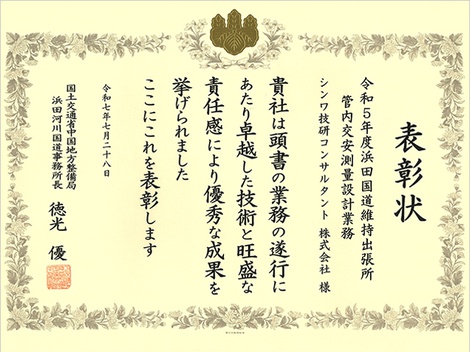 表彰状
令和5年度浜田国道維持出張所
管内交安測量設計業務
シンワ技研コンサルタント 株式会社 様
貴社は頭書の業務の遂行に
あたり卓越した技術と旺盛な
責任感により優秀な成果を
挙げられました
ここにこれを表彰します
令和七年七月二十八日
国土交通省中国地方整備局
浜田河川国道事務所長
徳光 優